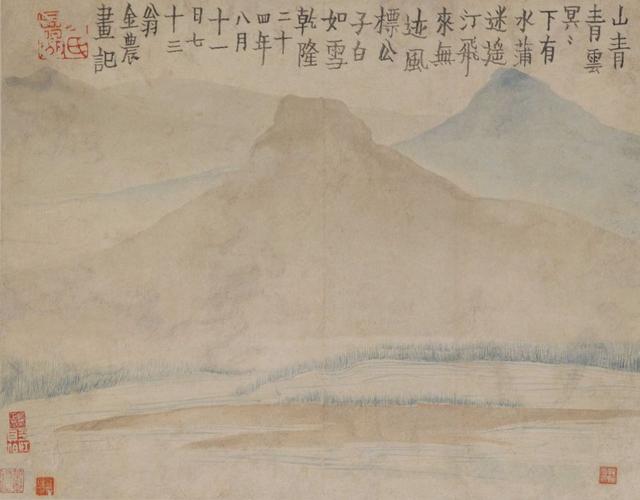 山青
青雲
冥〻
下有
水蒲
迷遙
汀飛
來無
迹風
標公
子白
如雪
乾隆
二十
四年
八月
十一
日七
十三
翁
金農
畫記